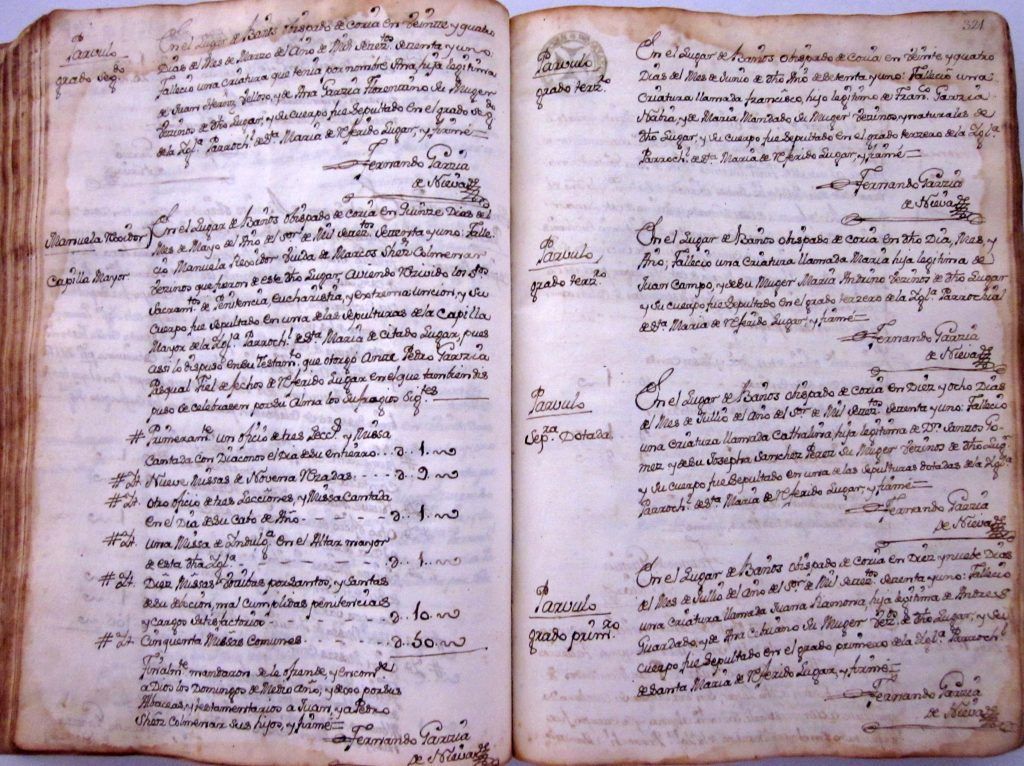 Parvulo
grado segdo
En el Lugar de Baños obispado de Coria en Veinte y quatro
Dias del Mes de Marzo del Año de Mil Setezs setenta y uno:
Fallecio una Criatura que tenia por nombre Ana, hija legitima
de Juan Velloso, y de Ana Garzia Florentino su Muger
Vezinos de dho Lugar, y su cuerpo fue Sepultado en el grado segdo
de la Yglª Parrochl de Sta Maria de Referido Lugar, y firmè
Fernando Garzia
de Nieva
Manuela Rexidor
Capilla Mayor
En el Lugar de Baños obispado de Coria en Quinze Dias del
Mes de Mayo del Año del Sor de Mil Setezos Setenta y uno: Falle-
cio Manuela Rexidor Viuda de Marcos Shez Colmenar
Vezinos que fueron de este dho Lugar, aviendo Rezivido los Stos
Sacramtos de Penitencia, Eucharistia, y extrema uncion, y su
Cuerpo fue Sepultado en una de las Sepulturas de la Capilla
Mayor de la Yglª Parrochl de Sta Maria de Citado Lugar, pues
assi lo dispuso en su Testamto que otorgò Ante Pedro Garzia
Pasqual Fiel de fechos de Referido Lugar en el que tambien dis
puso de celebrasen por su Alma los Sufragios Sigtes
# Primeramte un oficio de tres Lecczs y Missa
Cantada con Diaconos el Dia de su entierro . . . d. . 1.
# Yt. Nueve Missas de Novena Rezadas . . . d. . 9.
# Yt. otro oficio de tres Lecciones, y Missa Cantada
en el Dia de su Cabo de Año - - - - d. . 1.
# Yt. una Missa de Yndulgª en el Altar mayor
de esta dha Yglª - - - - d. . 1.
# Yt. Diez Missas Votibas por Santos, y Santas
de su debocion, mal Cumplidas penitencias
y cargos Satisfactorios - - - d. 10.
# Yt. Cinquenta Missas Comunes - - - - d. 50.
Finalmte mandaron se la ofrende y encomde
a Dios los Domingos de Medio Año, y dexo por sus
Albaceas, y testamentarios a Juan, y a Pedro
Shez Colmenar sus hijos, y firmè
Fernando Garzia
de Nieva
321
Parvulo
grado terzro
En el Lugar de Baños obispado de Coria en Veinte y quatro
Dias del Mes de Junio de dho Año de Setenta y uno: Fallecio una
Criatura llamada francisco, hijo legitimo de Franco Garzia
Neira, y de Maria Mandado su Muger Vezinos y naturales de
dho Lugar, y su cuerpo fue Sepultado en el grado terzero de la Yglª
Parrochl de Sta Maria de Referido Lugar, y firmè
Fernando Garzia
de Nieva
Parvulo
grado terzro
En el Lugar de Baños obispado de Coria en dho Dia, Mes, y
Año; Fallecio una Criatura llamada Maria hija legitima de
Juan Campo, y de su Muger Maria Andrino Vezinos de dho Lugar
y su cuerpo fue Sepultado en el grado terzero de la Yglª Parrochial
de Sta Maria de Referido Lugar, y firmè
Fernando Garzia
de Nieva
Parvulo
Sepra Dotada
En el Lugar de Baños obispado de Coria en Diez y ocho Dias
del Mes de Jullio del Año del Sor de Mil Setezos Setenta y uno: Fallecio
una Criatura llamada Cathalina, hija legitima de Dn Santos Go-
mez, y de su Josepha Sanchez Perez su Muger Vezinos de dho Lugr
y su Cuerpo fue Sepultado en una de las Sepulturas dotadas de la Yglª
Parrochl de Sta Maria de Referido Lugar, y firmè
Fernando Garzia
de Nieva
Parvulo
grado primro
En el Lugar de Baños obispado de Coria en Diez, y nuebe Dias
del Mes de Jullio del Año del Sor de Mil Setezos Setenta y uno: Fallecio
una Criatura llamada Juana Ramona, hija legitima de Andres
Guardado, y de Ana Cibriano su Muger Vezs de dho Lugar, y su
cuerpo fue Sepultado en el grado primero de la Yglª Parroch
de Santa Maria de Referido Lugar, y firmè
Fernando Garzia
de Nieva